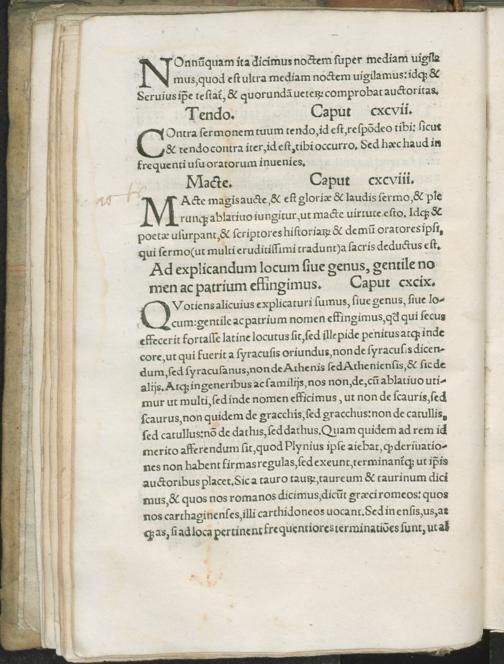 NOnnūquam ita dicimus noctem super mediam uigila
mus,quod est ultra mediam noctem uigilamus: idqꝫ &
Seruius ip̄e testat̄, & quorundā ueteꝝ comprobat auctoritas.
Tendo. Caput cxcvii.
COntra sermonem tuum tendo,id est,respōdeo tibi: sicut
& tendo contra iter,id est,tibi occurro. Sed hæc haud in
frequenti usu oratorum inuenies.
Macte. Caput cxcviii.
MActe magis aucte,& est gloriæ & laudis sermo,& ple
runqꝫ ablatiuo iungitur,ut macte uirtute esto. Idqꝫ &
poetæ usurpant,& scriptores historiaꝝ & demū oratores ipsi,
qui sermo(ut multi eruditissimi tradunt)a sacris deductus est.
Ad explicandum locum siue genus, gentile no
men ac patrium effingimus. Caput cxcix.
QVotiens alicuius explicaturi sumus, siue genus, siue lo-
cum:gentile ac patrium nomen effingimus,qd̄ qui secus
effecerit fortasse latine locutus sit,sed illepide penitus atqꝫ inde
core,ut qui fuerit a syracusis oriundus,non de syracusis dicen-
dum,sed syracusanus,non de Athenis sed Atheniensis,& sic de
alijs. Atqꝫ in generibus ac familijs,nos non,de,cū ablatiuo uti-
mur ut multi,sed inde nomen efficimus, ut non de scauris,sed
scaurus,non quidem de gracchis,sed gracchus:non de catullis,
sed catullus:nō de dathis,sed dathus. Quam quidem ad rem id
merito afferendum sit,quod Plynius ipse aiebat, ꝙ deriuatio-
nes non habent firmas regulas,sed exeunt,terminantqꝫ ut ip̄is
auctoribus placet. Sic a tauro tauꝝ, taureum & taurinum dici
mus,& quos nos romanos dicimus,dicūt græci romeos: quos
nos carthaginenses,illi carthidoneos uocant. Sed in ensis,us,at
qꝫ as, si ad loca pertinent frequentiores terminatiōes sunt, ut al